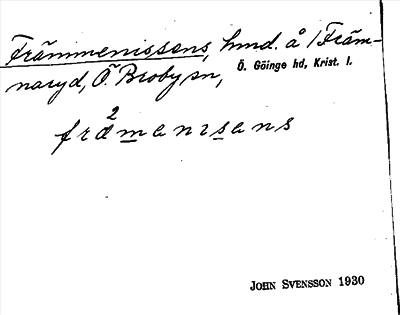 Främmenissens, hmd. å 1 Främ-
naryd, Ö. Broby sn, Ö. Göinge hd, Krist. l.
främenısens
JOHN SVENSSON 1930